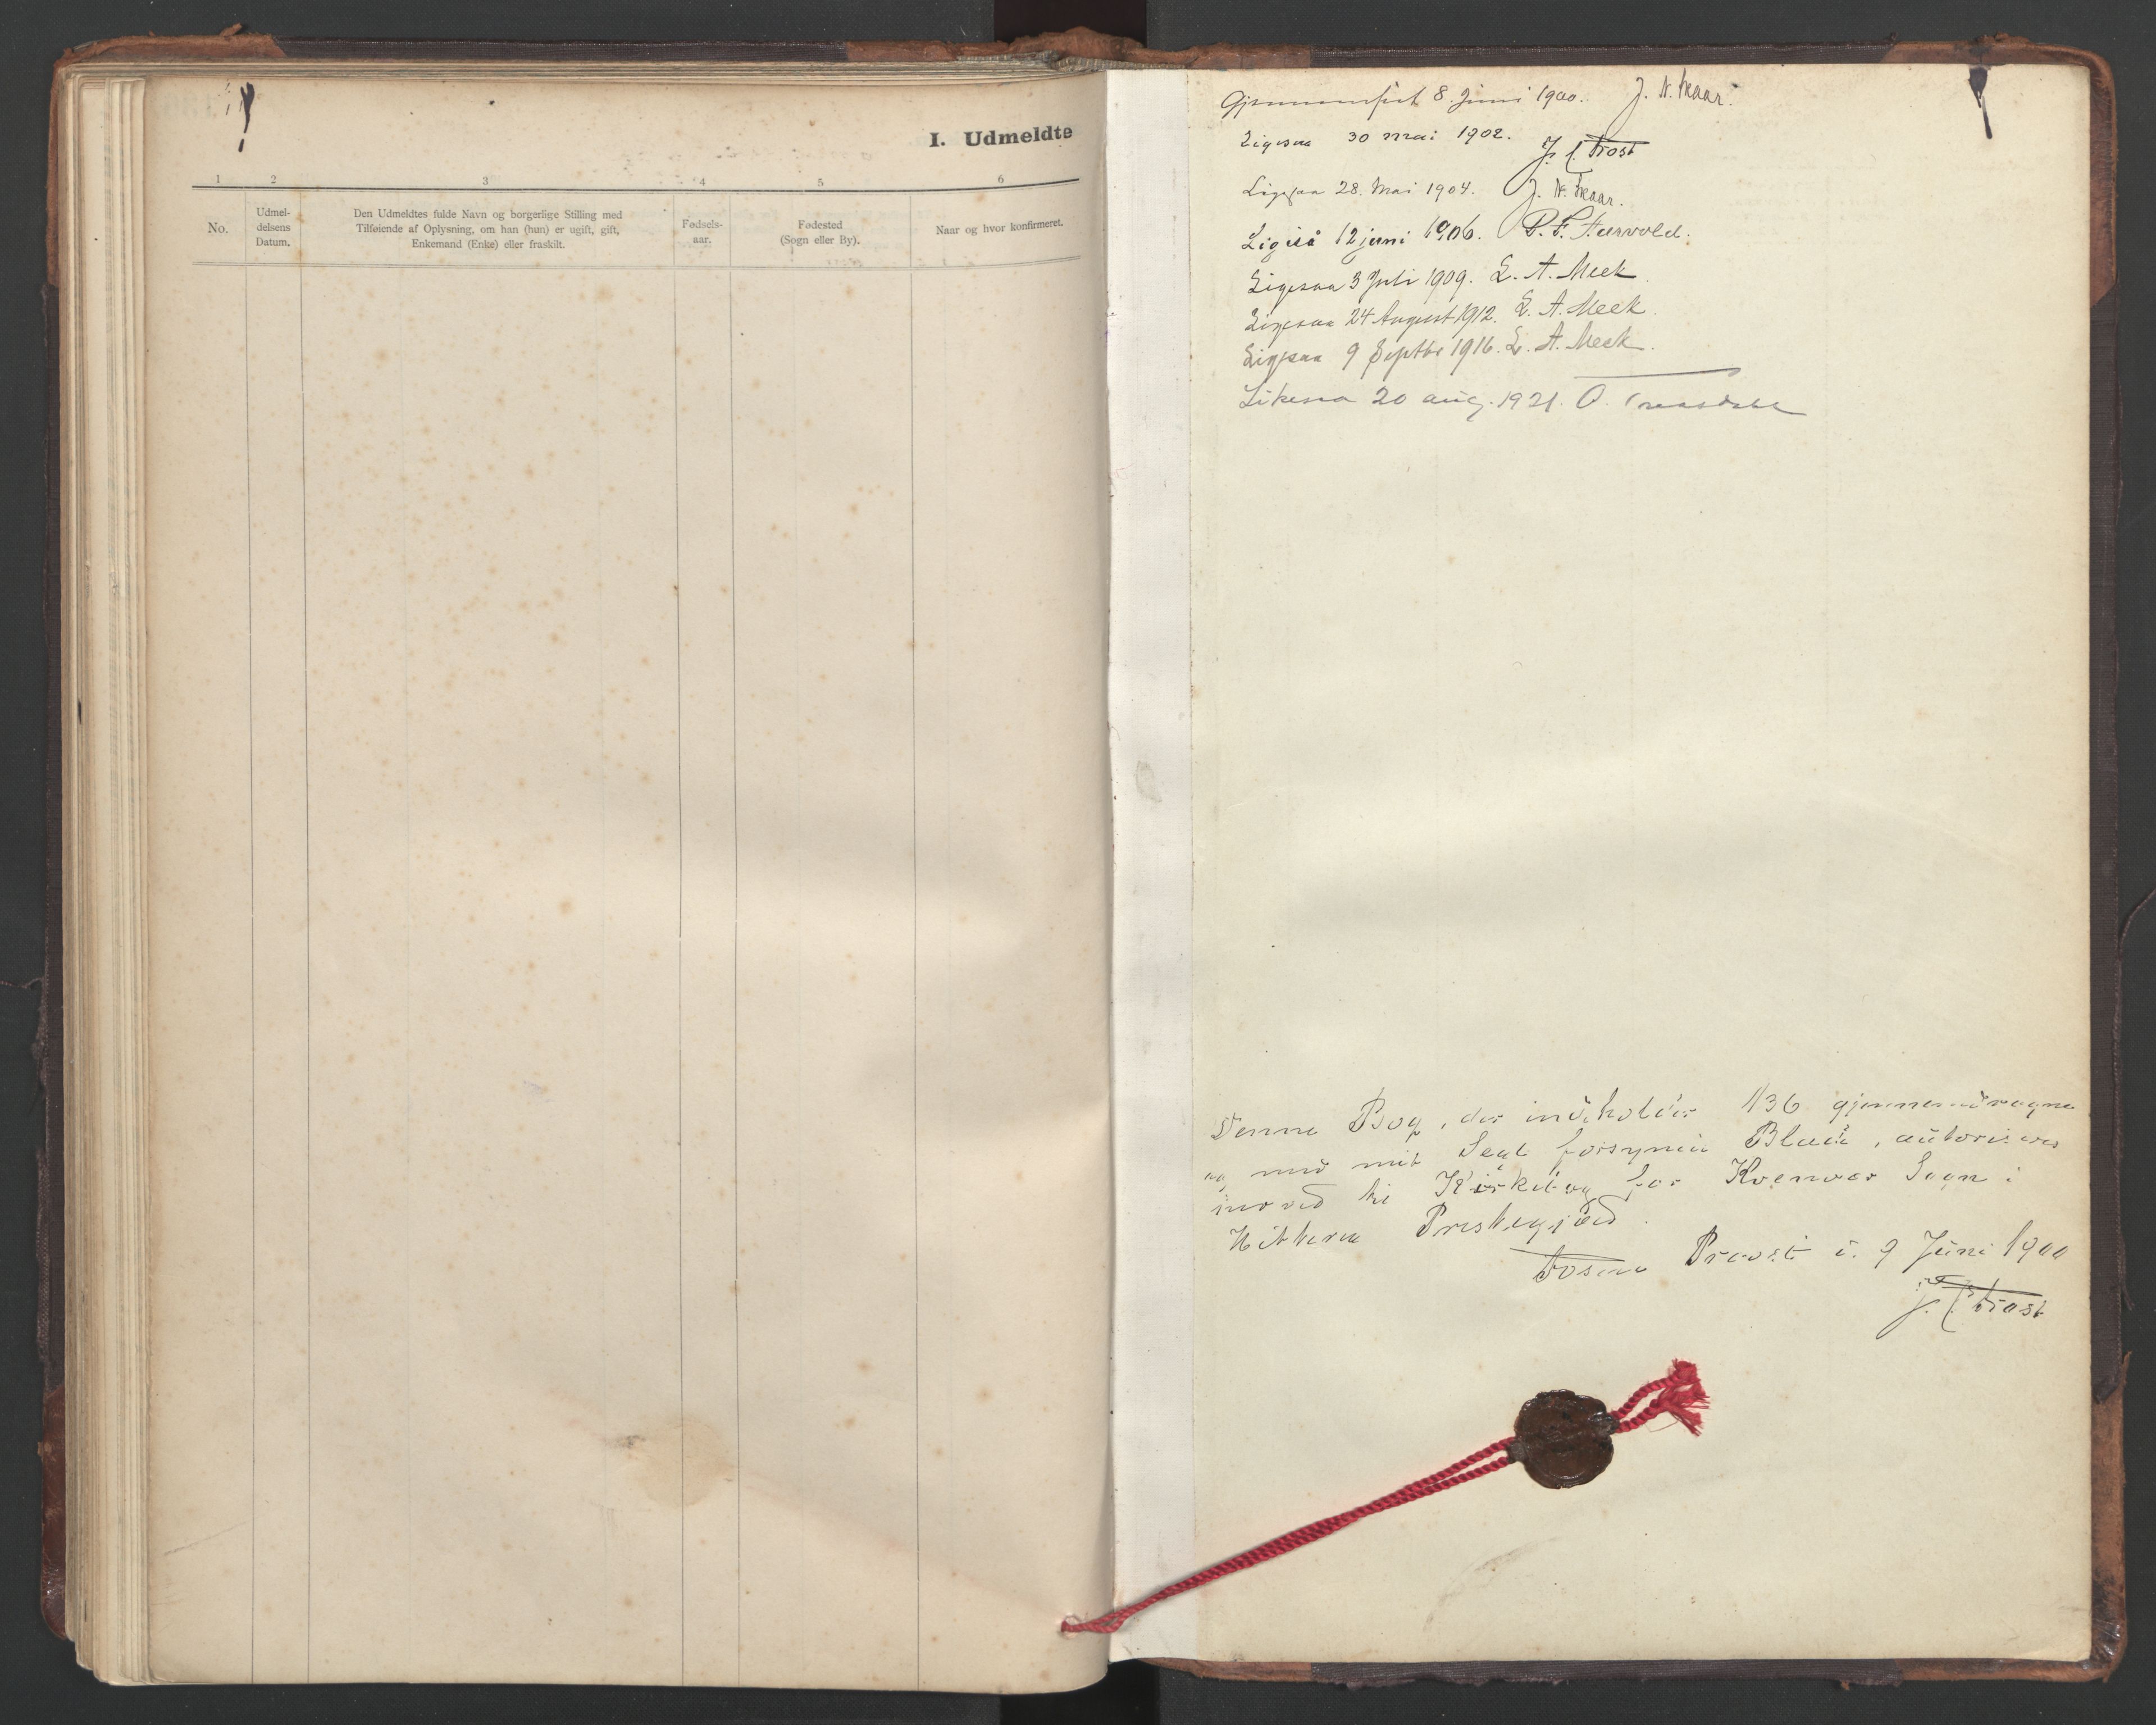 I. Udmeldte
1 2 3 4 5 6
No.
Udmel-
delsens
Datum.
Den Udmeldtes fulde Navn og borgerlige Stilling med
Tilføiende af Oplysning, om han (hun) er ugift, gift,
Enkemand (Enke) eller fraskilt.
Fødsels-
aar.
Fødested
(Sogn eller By).
Naar og hvor konfirmeret.
Gjennemseet 8. Juni 1900. J. N. Skaar.
Ligesaa 30 mai 1902. Trost
Ligesaa 28. Mai 1904. J. N. Skaar.
Ligeså 12 juni 1906. P. F.
Ligesaa 3 Juli 1909. L. A. Meek
Ligesaa 24 August 1912. L. A. Meek.
Ligesaa 9 Septbr 1916. L. A. Meek.
Likesaa 20 aug. 1921. O.
Denne Bog, der indeholder 136 gjennemdragne
og med mit Segl forsynede Blade, autoriseres
herved til Kirkebog for Kvenvær Sogn i
Hitteren Prestegjæld.
Fosens Provsti d. 9 Juni 1900
Trost